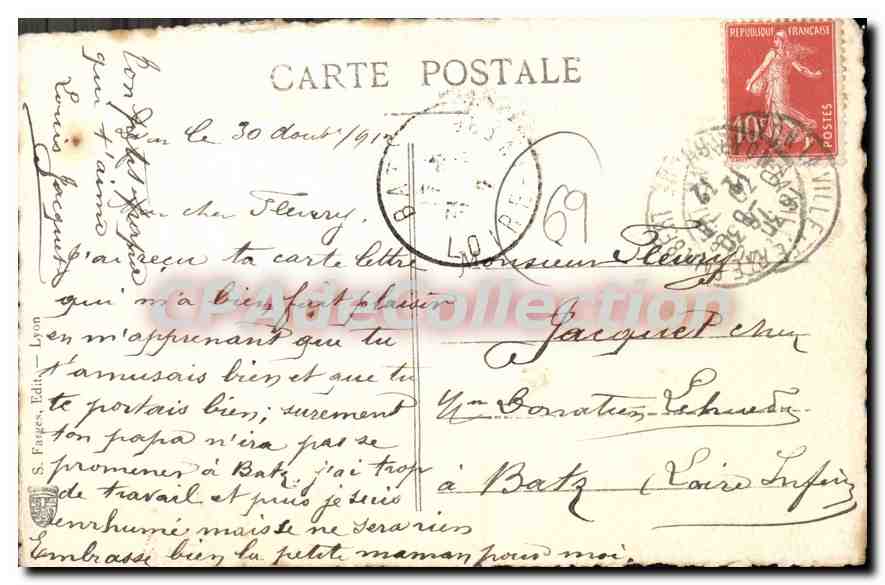 CARTE POSTALE
REPUBLIQUE FRANÇAISE
10c
POSTES
BATZ
LOIRE-INF
VILLE
69
le 30 Août 1912
cher Fleury,
J'ai reçu ta carte lettre
qui m'a bien fait plaisir
en m'apprenant que tu
t'amusais bien et que tu
te portais bien; surement
ton papa n'ira pas se
promener à Batz, j'ai trop
de travail et puis je suis
enrhumé mais se ne sera rien
Embrasse bien la petite maman pour moi.
Ton petit
qui t'aime
Louis Jacquet
Monsieur Fleury
Jacquet chez
Donatien Lehuédé
à Batz (Loire Infre
S. Farges, Edit. — Lyon
CPAdeCollection